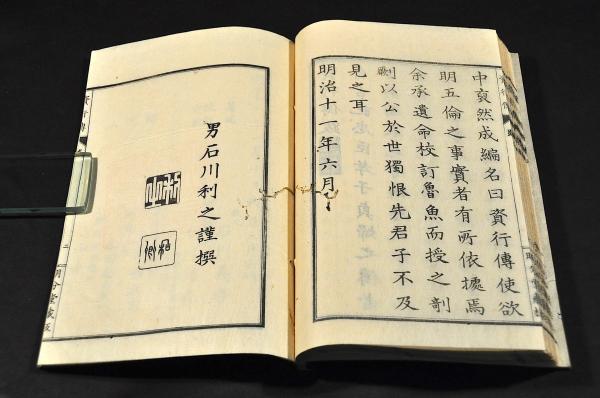 中裒然成編名曰資行傳使欲
明五倫之事實者有所依據焉
余承遺命校訂魯魚而授之剞
劂以公於世獨恨先君子不及
見之耳
明治十一年六月
男石川利之謹撰